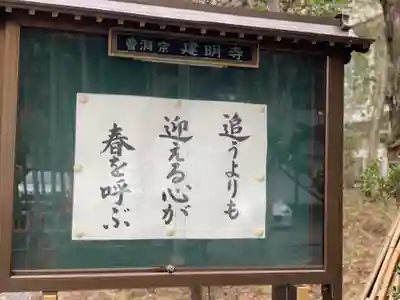 曹洞宗 建明寺
追うよりも
迎える心が
春を呼ぶ